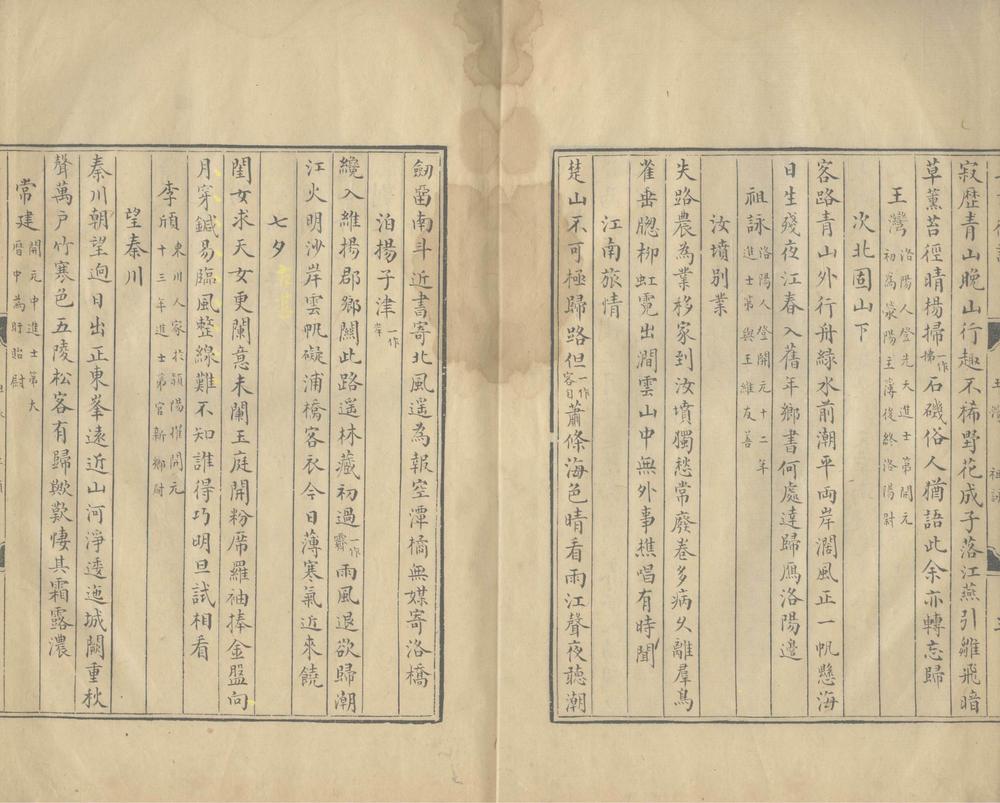 寂歷青山晚山行趣不稀野花成子落江燕引雛飛暗
草薰苔徑晴楊掃一作拂石磯俗人猶語此余亦轉忘歸
王灣洛陽人登先天進士第開元
初為滎陽主薄後終洛陽尉
次北固山下
客路青山外行舟綠水前潮平兩岸濶風正一帆懸海
日生殘夜江春入舊年鄉書何處達歸鴈洛陽邊
祖詠洛陽人登開元十二年
進士第與王維友善
汝墳別業
失路農為業移家到汝墳獨愁常廢卷多病久離羣鳥
雀垂牕柳虹霓出澗雲山中無外事樵唱有時聞
江南旅情
楚山不可極歸路但一作客日蕭條海色晴看雨江聲夜聽潮
劒畱南斗近書寄北風遥為報空潭橘無媒寄洛橋
泊揚子津一作岸
纔入維揚郡鄉關此路遥林藏初過一作霽雨風退欲歸潮
江火明沙岸雲帆礙浦橋客衣今日薄寒氣近來饒
七夕
閨女求天女更闌意未闌玉庭開粉席羅袖捧金盤向
月穿鍼易臨風整線難不知誰得巧明旦試相看
李頎東川人家於潁陽擢開元
十三年進士第官新鄉尉
望秦川
秦川朝望逈日出正東峯遠近山河淨逶迤城闕重秋
聲萬戶竹寒色五陵松客有歸歟歎悽其霜露濃
常建開元中進士第大
曆中為盱眙尉